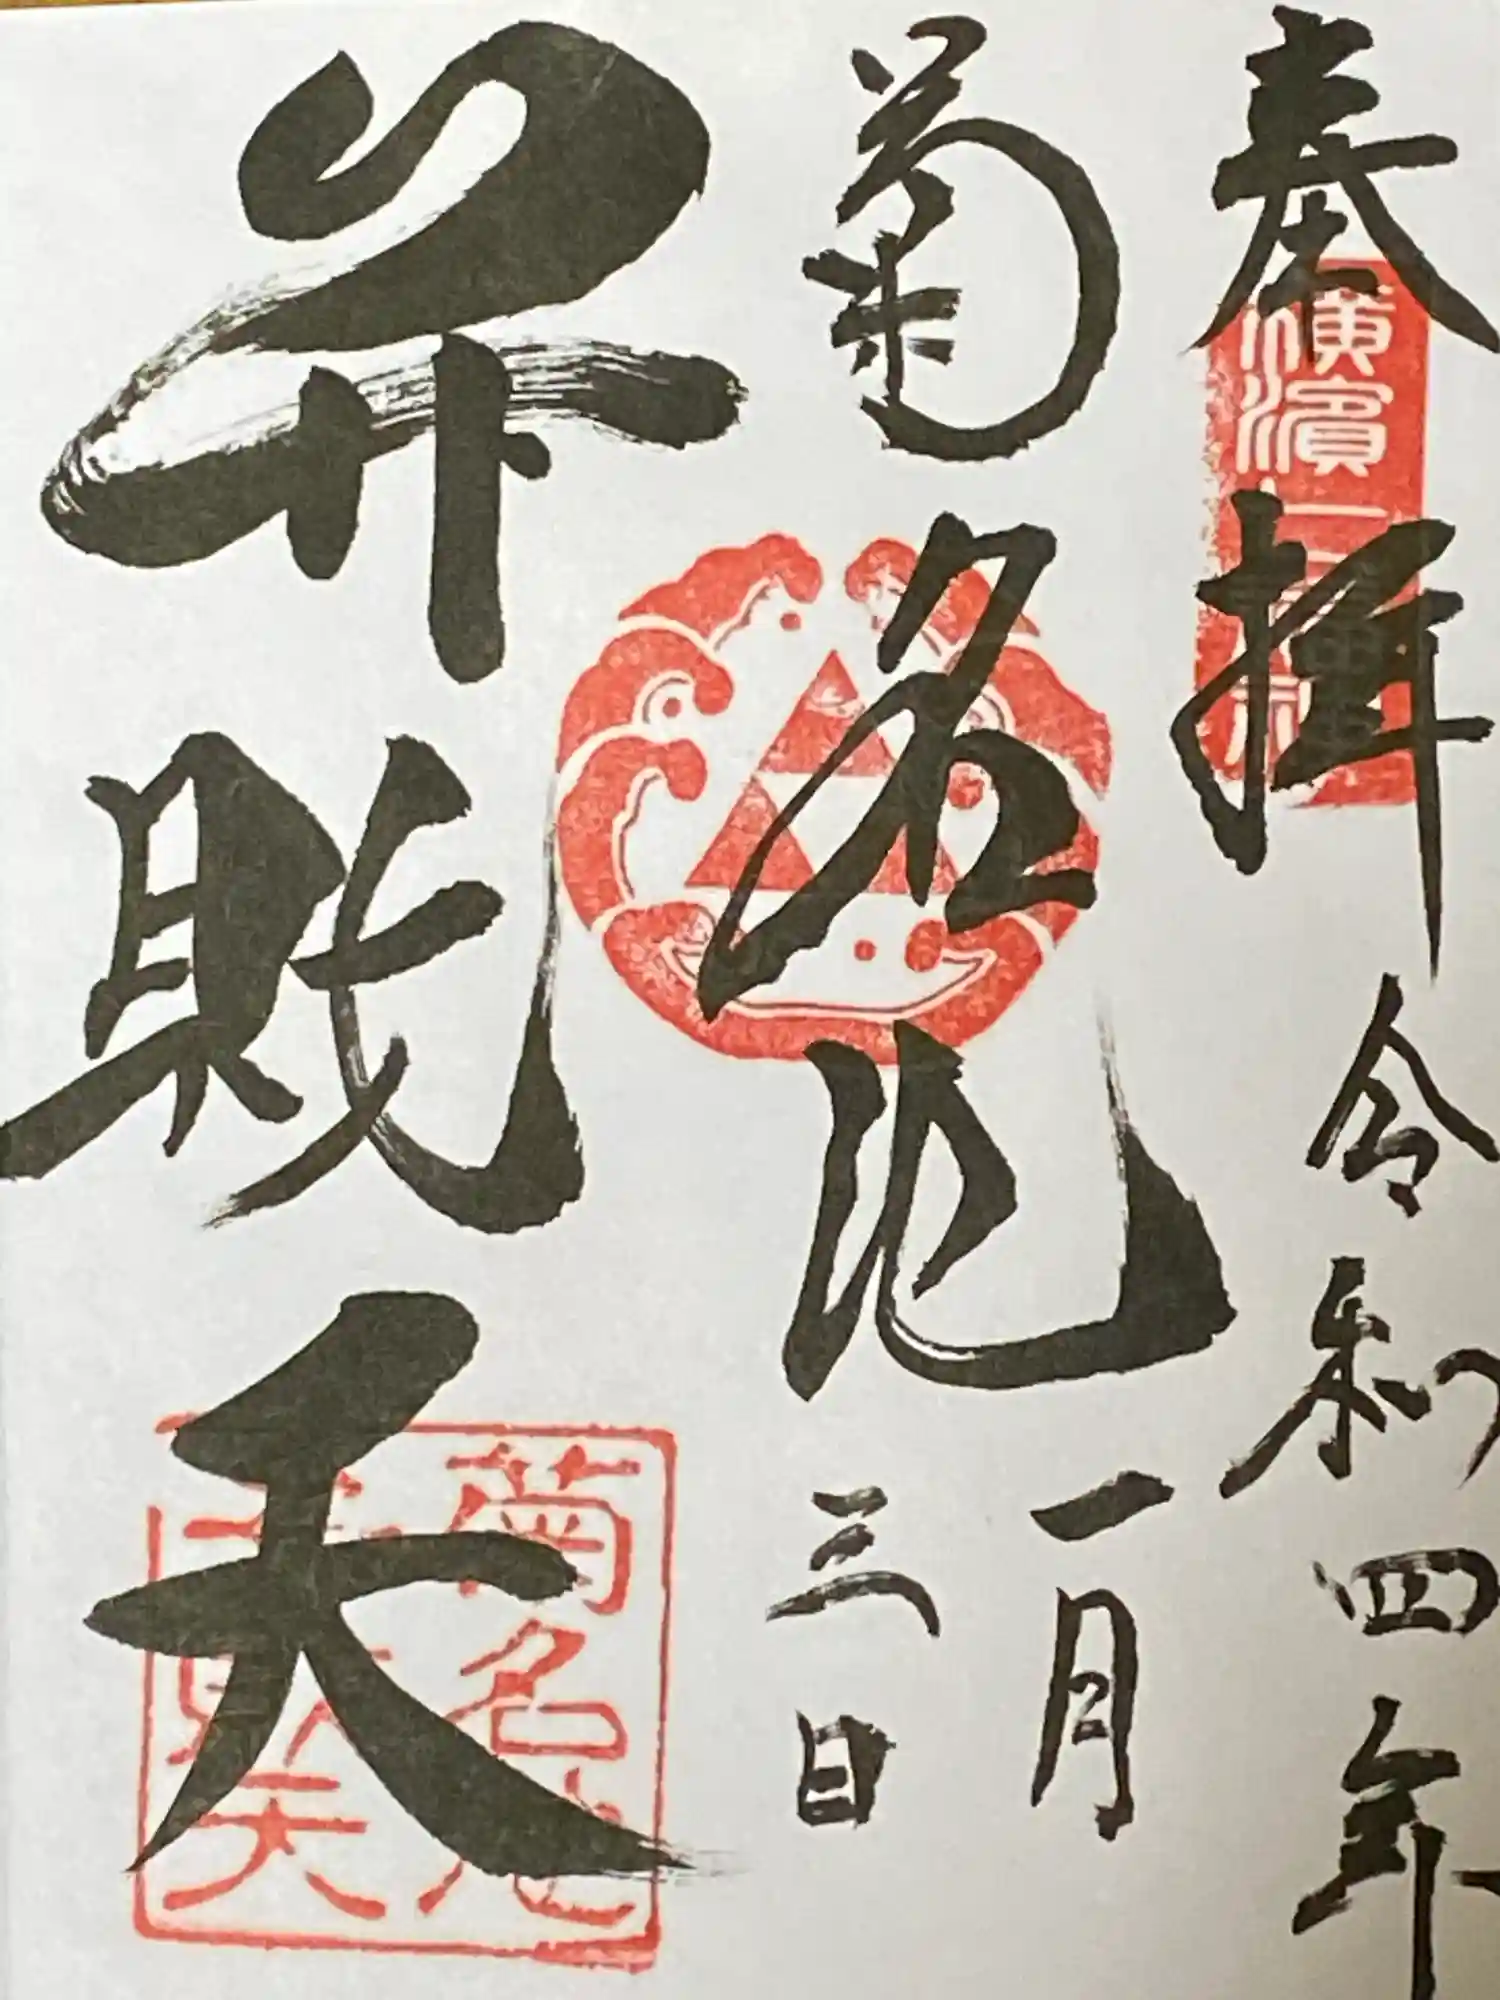 奉拝
令和四年
一月
三日
菊名池
弁財天
横濱
菊名池
天